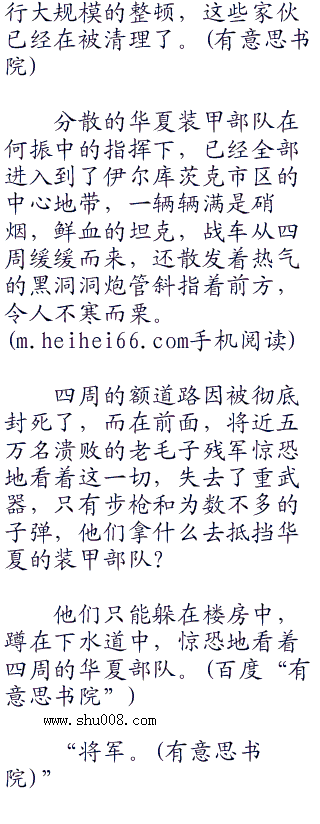 行大规模的整顿，这些家伙
已经在被清理了。(有意思书
院)
分散的华夏装甲部队在
何振中的指挥下，已经全部
进入到了伊尔库茨克市区的
中心地带，一辆辆满是硝
烟，鲜血的坦克，战车从四
周缓缓而来，还散发着热气
的黑洞洞炮管斜指着前方，
令人不寒而栗。
(m.heihei66.com手机阅读)
四周的额道路因被彻底
封死了，而在前面，将近五
万名溃败的老毛子残军惊恐
地看着这一切，失去了重武
器，只有步枪和为数不多的
子弹，他们拿什么去抵挡华
夏的装甲部队？
他们只能躲在楼房中，
蹲在下水道中，惊恐地看着
四周的华夏部队。(百度“有
意思书院”)
www.shu008.com
“将军。(有意思书
院)”